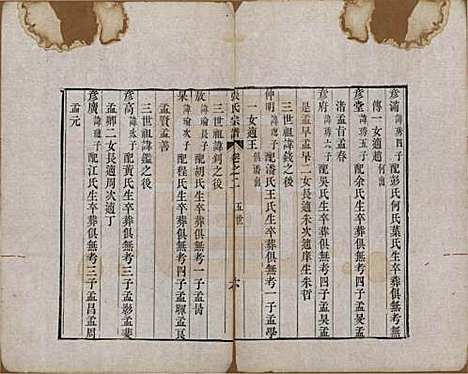 彦浦諱瑃四子配彭氏何氏葉氏生卒葬俱無考
傳一女適何
彦堂諱瑃五子配余氏生卒葬俱無考四子孟㷡孟
浩孟旨孟春
彦府諱瑃六子配吳氏生卒葬俱無考四子孟昊孟
是孟早孟旱二女長適朱次適庠生朱哲
三世祖諱錢之後
仲明配潘氏王氏生卒葬俱無考一子孟學
一女適王俱潘出
張氏宗譜
卷之二
五世
六
三世祖諱釗之後
放諱瑜長子配胡氏生卒葬俱無考一子孟暠
杲諱瑜次子配程氏生卒葬俱無考四子孟暉孟良
孟賢孟善
三世祖諱鑑之後
彦高配黃氏生卒葬俱無考四子孟影孟斐
孟卿二女長適周次適丁
彦廣配江氏生卒葬俱無考三子孟昌孟周
孟元